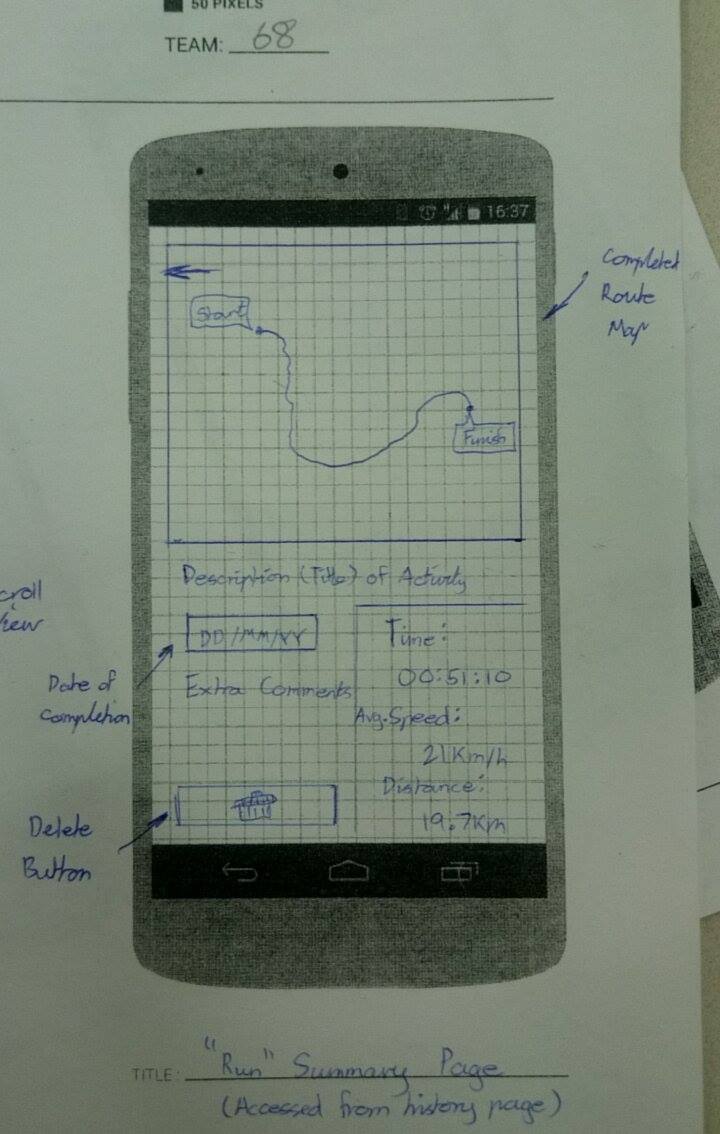 50 PIXELS
TEAM: 68
16:37
Completed
Route
Map
Start
Finish
Description (Title) of Activity
DD/MM/YY
Time:
00:51:10
Extra Comments
Avg.Speed:
21Km/h
Distance:
19.7Km
croll
iew
Date of
Completion
Delete
Button
TITLE: "Run" Summary Page
(Accessed from history page)